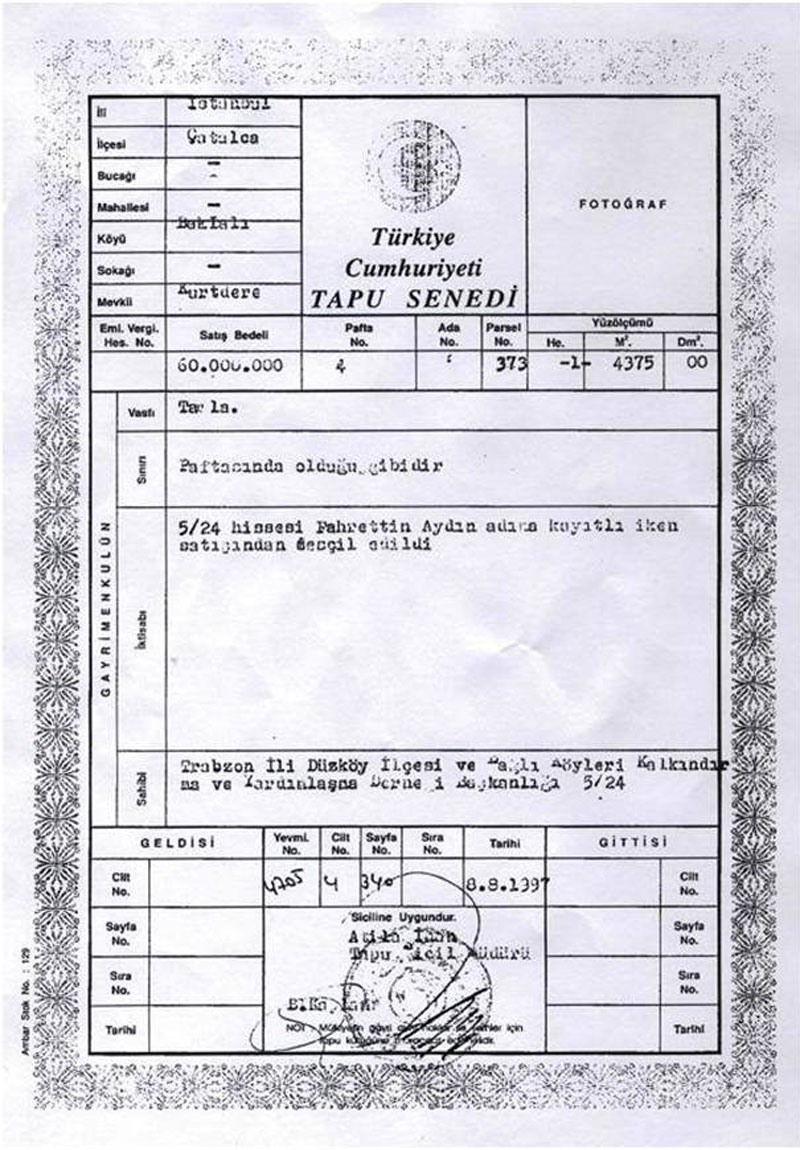 İli İstanbul
İlçesi Çatalca
Bucağı -
Mahallesi -
Köyü Baklalı
Sokağı -
Mevkii Kurtdere
Türkiye
Cumhuriyeti
TAPU SENEDİ
FOTOĞRAF
Eml. Vergi.
Hes. No.
Satış Bedeli
Pafta
No.
Ada
No.
Parsel
No.
Yüzölçümü
He. M². Dm².
60.000.000 4 373 -1- 4375 00
GAYRİMENKULÜN
Vasfı Tarla.
Sınırı Paftasında olduğu gibidir
İktisabı
5/24 hissesi Fahrettin Aydın adına kayıtlı iken
satışından tescil edildi
Sahibi
Trabzon İli Düzköy İlçesi ve Bağlı Köyleri Kalkındır
ma ve Yardımlaşma Derneği Başkanlığı 5/24
GELDİSİ
Yevmi.
No.
Cilt
No.
Sayfa
No.
Sıra
No.
Tarihi
GİTTİSİ
Cilt
No.
4205 4 340 8.8.1997
Cilt
No.
Sayfa
No.
Siciline Uygundur.
Sayfa
No.
Tapu Sicil Müdürü
Sıra
No.
Sıra
No.
Tarihi
NOT : Mülkiyetin gayri ayni haklar ile şerhler için
tapu kütüğüne müracaat edilmelidir.
Tarihi
Ambar Stok No. : 129